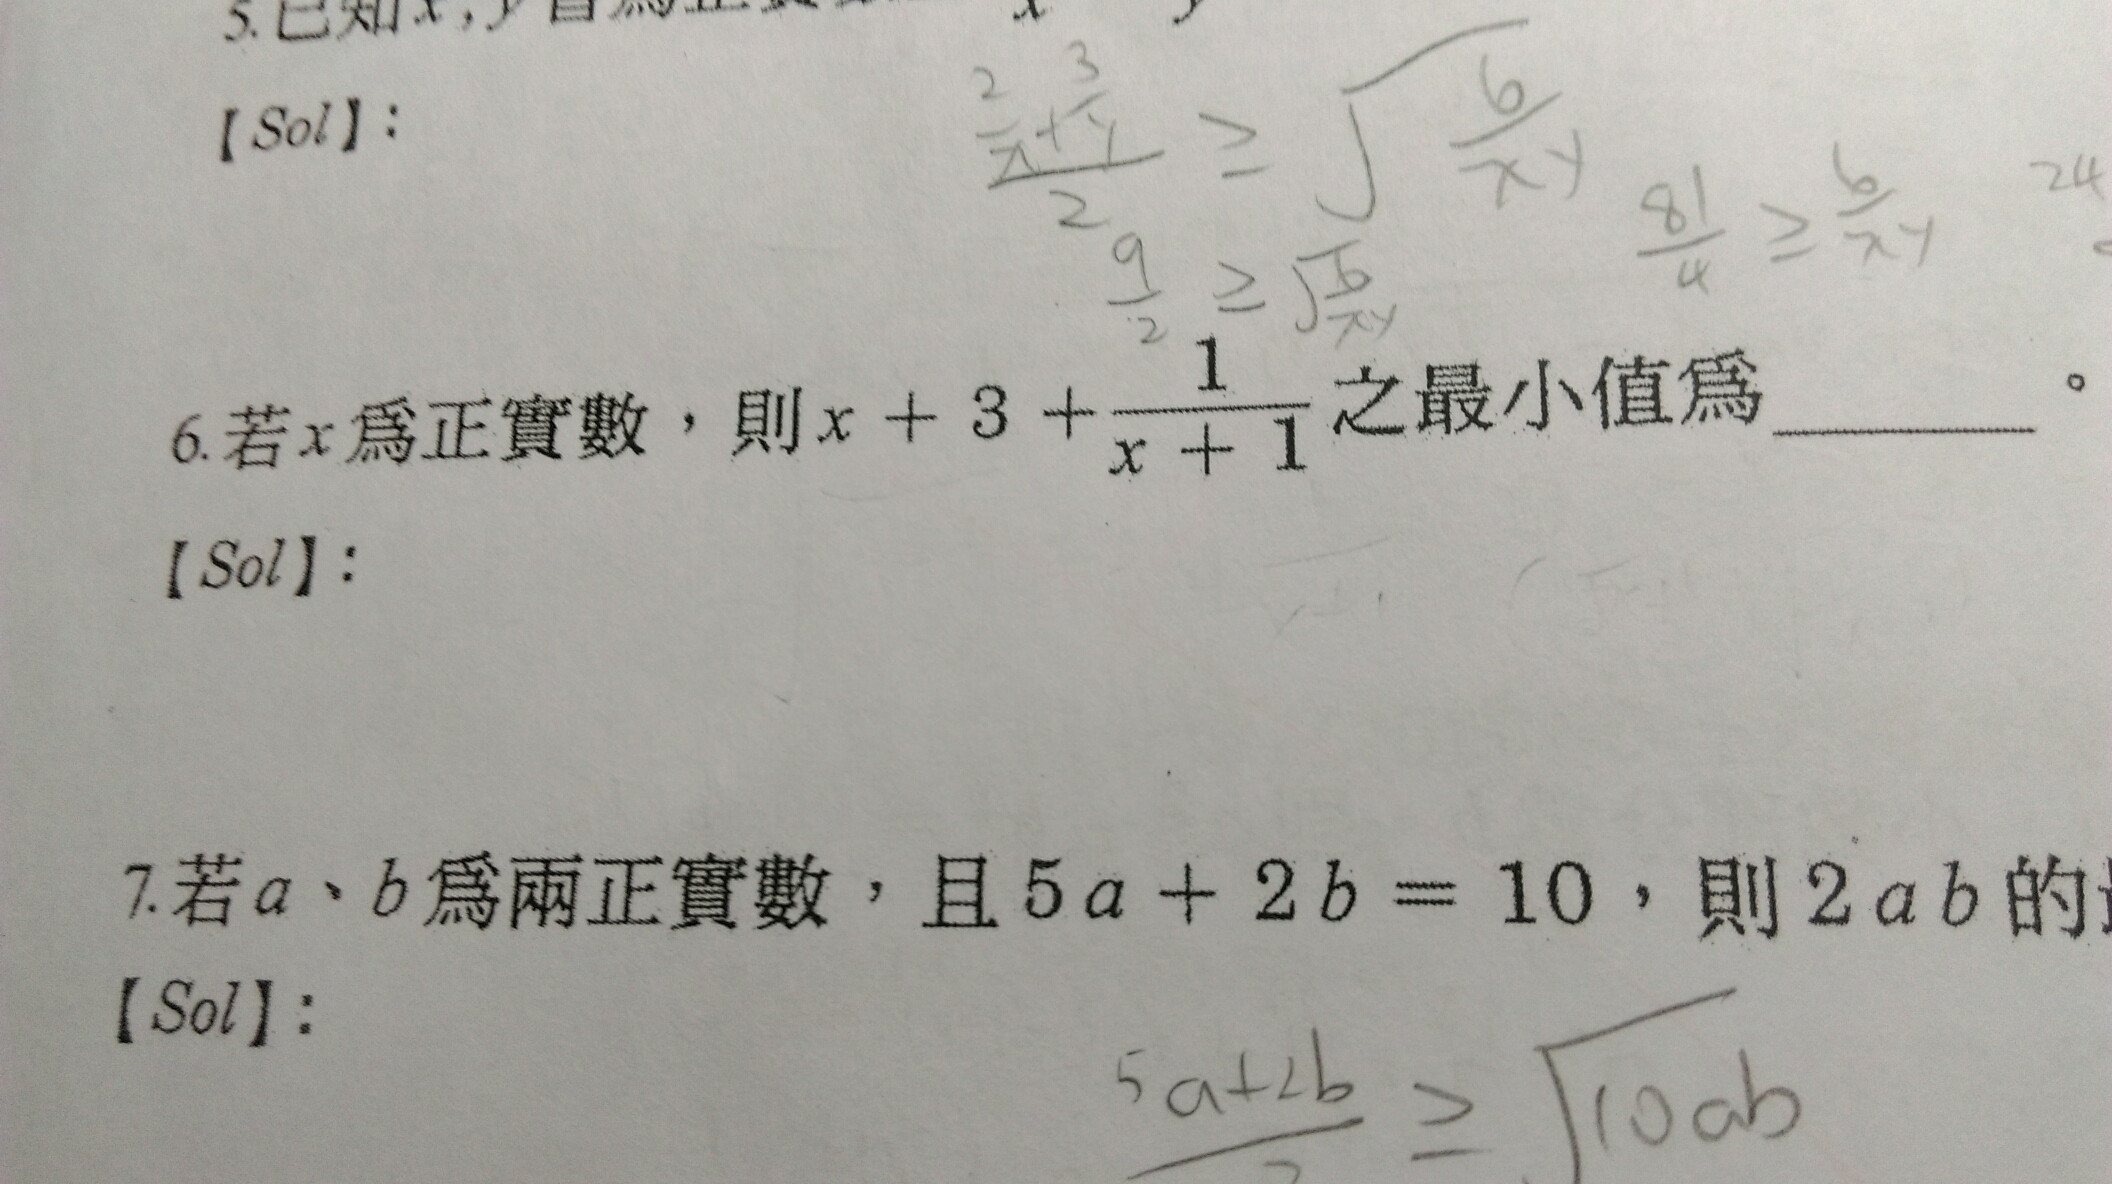 5.已知x,y皆為正實
【Sol】:
\frac{\frac{2}{x}+\frac{3}{y}}{2} ≥ \sqrt{\frac{6}{xy}}
\frac{9}{2} ≥ \sqrt{\frac{6}{xy}} \frac{81}{4} ≥ \frac{6}{xy} 24
6.若x為正實數,則x + 3 + \frac{1}{x + 1}之最小值為______。
【Sol】:
7.若a、b為兩正實數,且5a + 2b = 10,則2ab的
【Sol】:
\frac{5a+2b}{2} ≥ \sqrt{10ab}